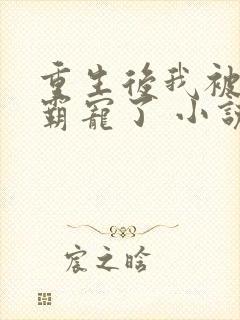 重生後我被
霸寵了 小說
宸之晗